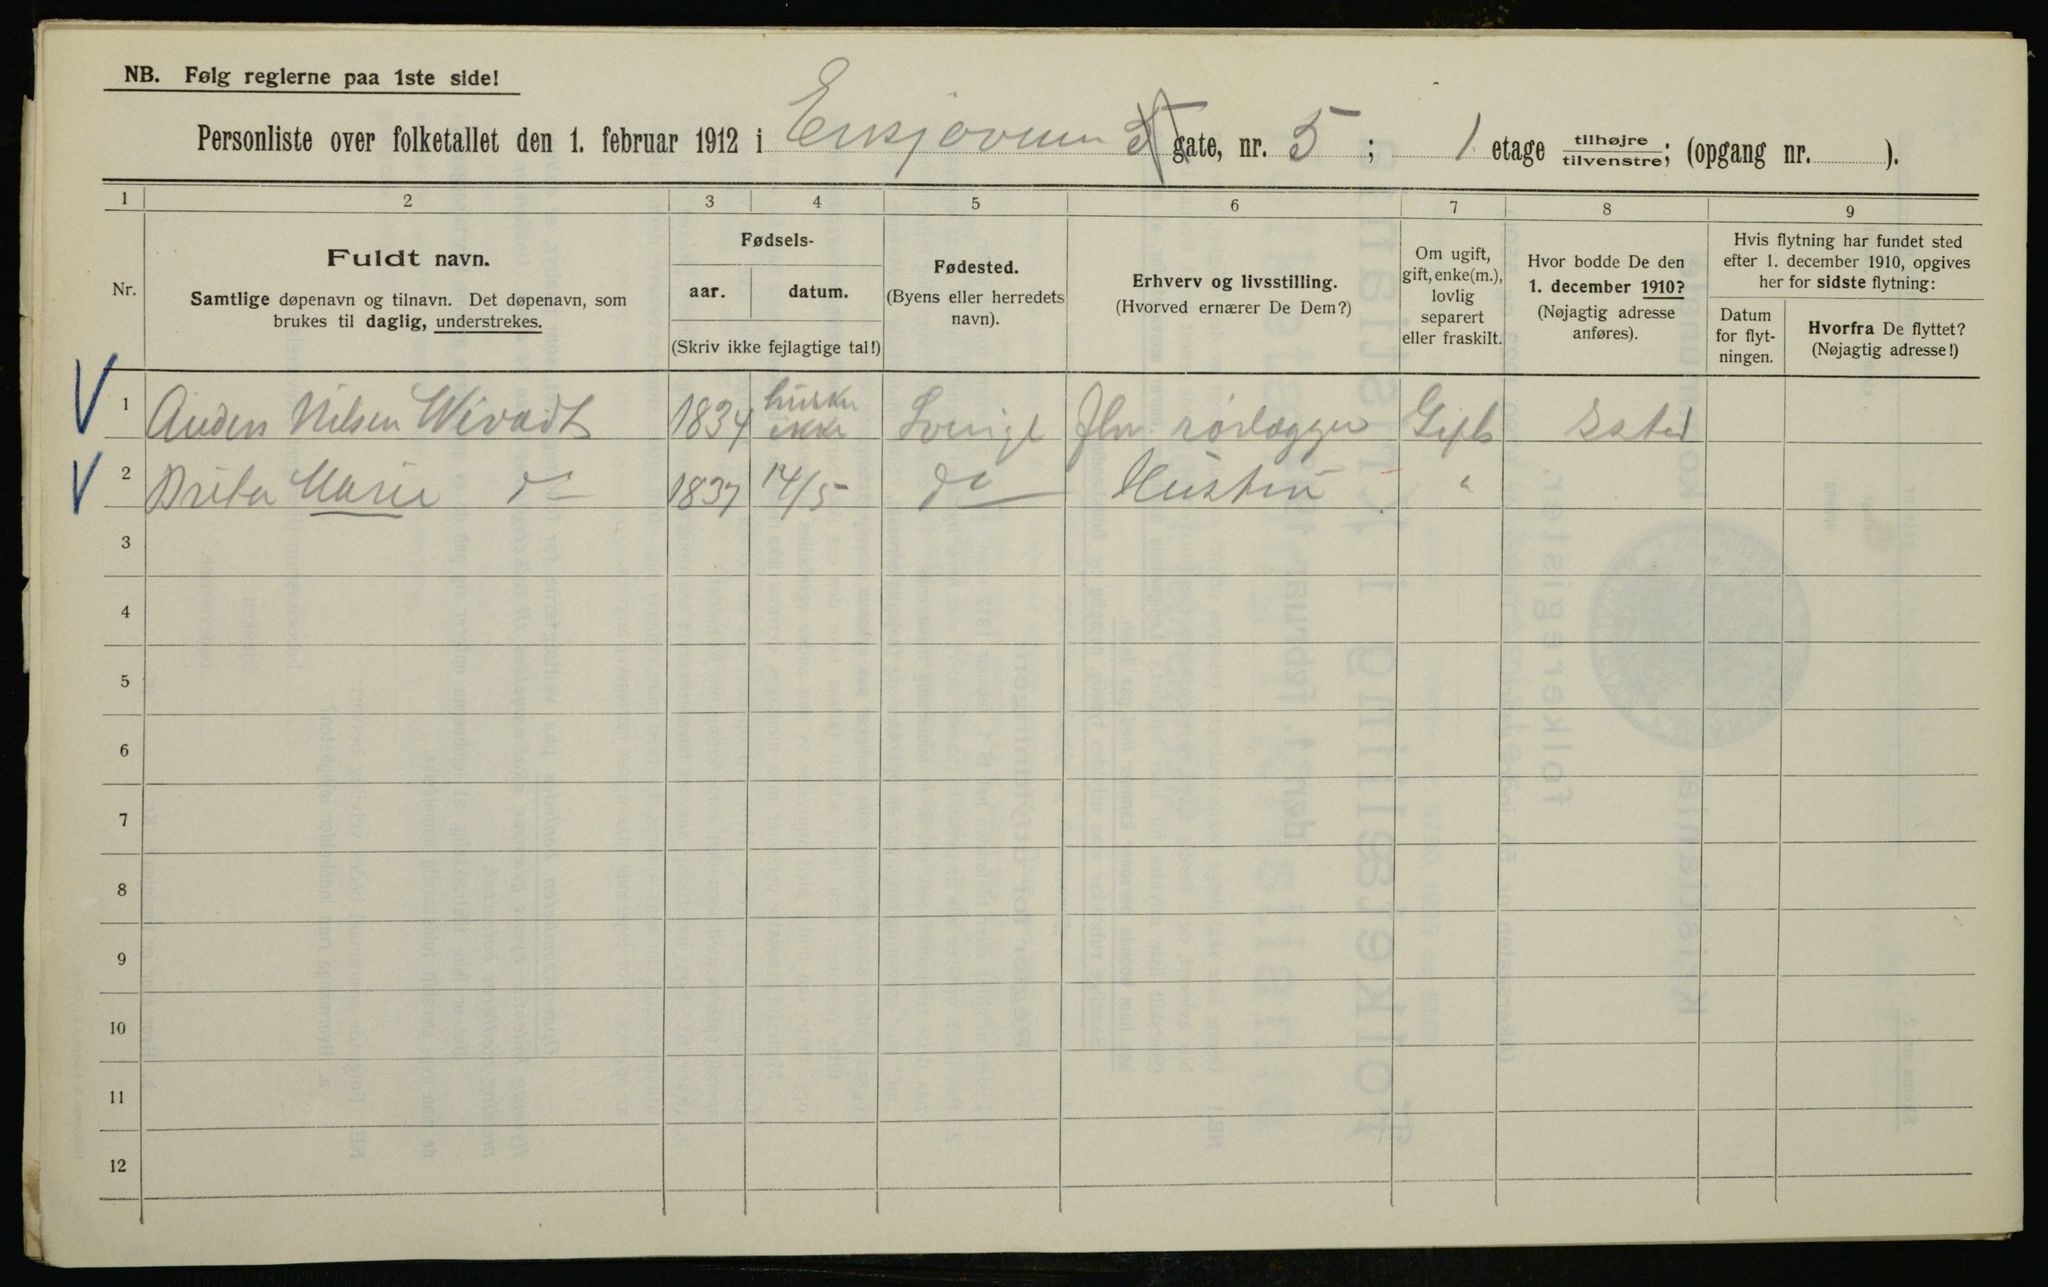 NB. Følg reglerne paa 1ste side!
Personliste over folketallet den 1. februar 1912 i Ensjøveien gate, nr. 5 ; 1 etage tilhøjre tilvenstre; (opgang nr. ).
1 2 3 4 5 6 7 8 9
Nr.
Fuldt navn.
Samtlige døpenavn og tilnavn. Det døpenavn, som
brukes til daglig, understrekes.
Fødsels-
aar. datum.
(Skriv ikke fejlagtige tal!)
Fødested.
(Byens eller herredets
navn).
Erhverv og livsstilling.
(Hvorved ernærer De Dem?)
Om ugift,
gift, enke(m.),
lovlig
separert
eller fraskilt.
Hvor bodde De den
1. december 1910?
(Nøjagtig adresse
anføres).
Hvis flytning har fundet sted
efter 1. december 1910, opgives
her for sidste flytning:
Datum
for flyt-
ningen.
Hvorfra De flyttet?
(Nøjagtig adresse!)
1 Anders Nilsen 1834 huske ikke Sverige rørlægger Gift
2 Brita Marie do 1837 14/5 do Hustru "
3
4
5
6
7
8
9
10
11
12